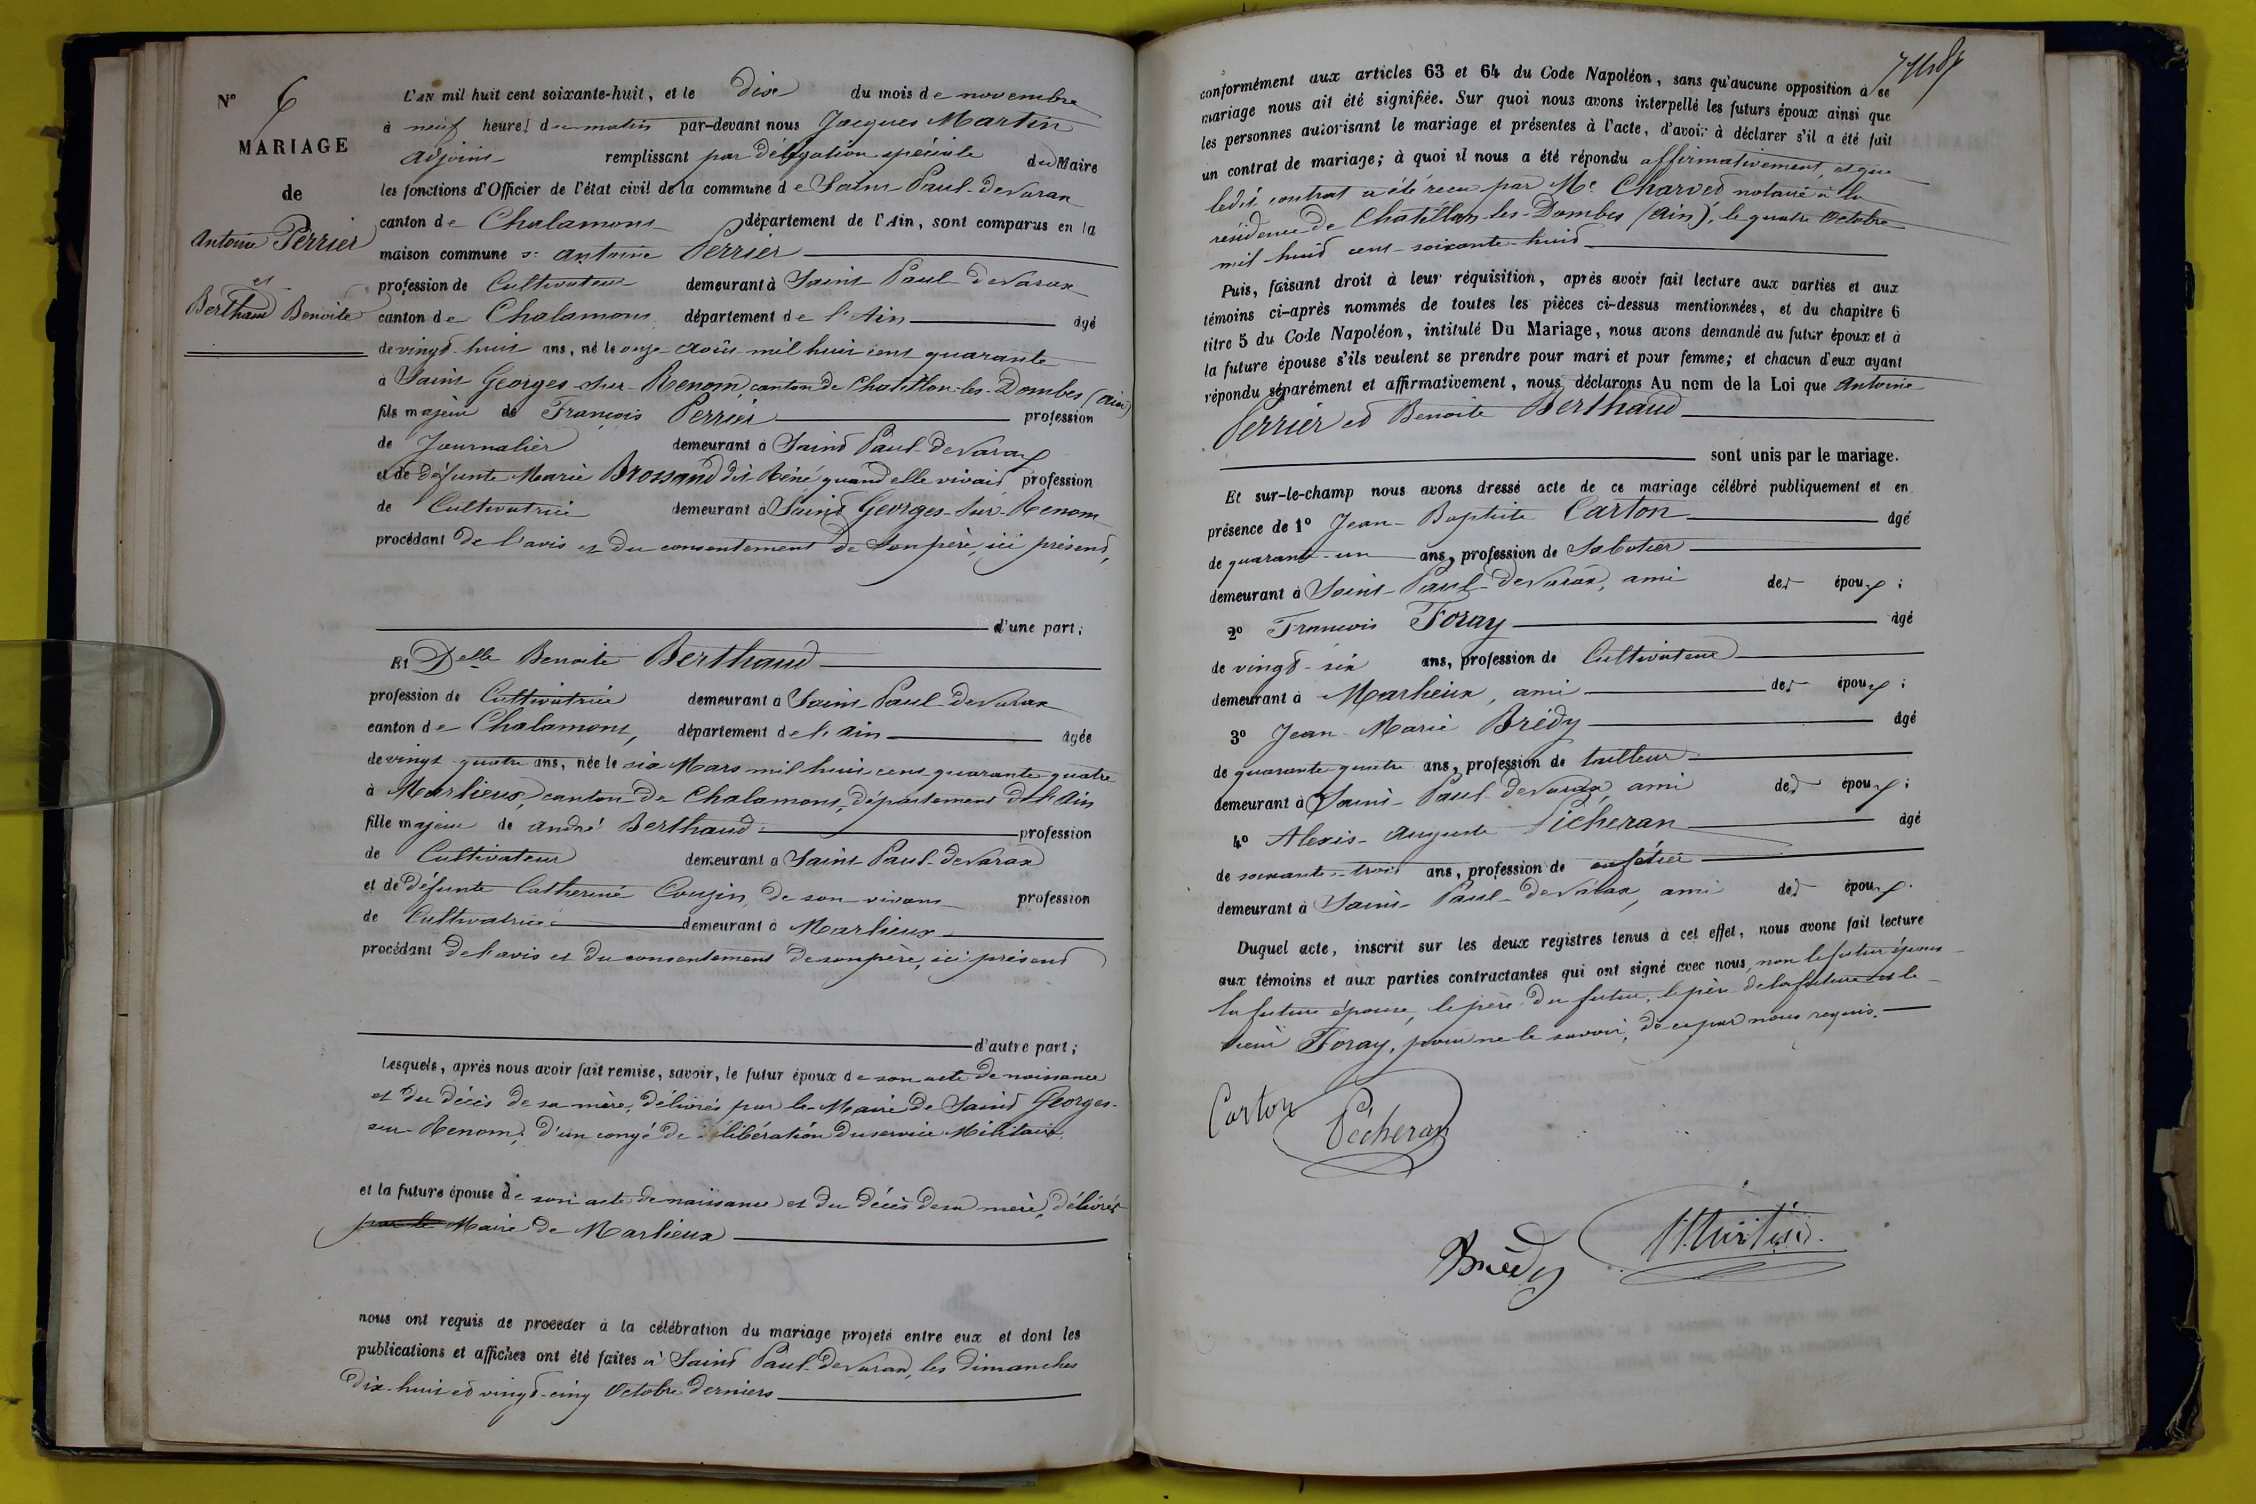 N° 6
MARIAGE
de
Antoine Perrier
et
Berthaud Benoite
L'AN mil huit cent soixante-huit, et le dix du mois de novembre
à neuf heures du matin par-devant nous Jacques Martin
adjoint remplissant par délégation spéciale du Maire
les fonctions d'Officier de l'état civil de la commune de Saint Paul-de Varax
canton de Chalamont département de l'Ain, sont comparus en la
maison commune sr antoine Perrier
profession de Cultivateur demeurant à Saint Paul de Varax
canton de Chalamont département de l'Ain âgé
de vingt-huit ans, né le onze août mil huit cent quarante
à Saint Georges-sur-Renom, canton de Chatillon-les-Dombes (ain)
fils majeur de François Perrier profession
de Journalier demeurant à Saint Paul-de Varax
et de défunte Marie Brossand dit Réné, quand elle vivait profession
de Cultivatrice demeurant à Saint Georges-sur-Renom
procédant de l'avis et du consentement de son père, ici présent,
d'une part;
Et Delle Benoite Berthaud
profession de Cultivatrice demeurant à Saint Paul-de Varax
canton de Chalamont, département de l'Ain âgée
de vingt-quatre ans, née le six Mars mil huit cent quarante-quatre
à Marlieux, canton de Chalamont, département de l'Ain
fille majeure de andré Berthaud profession
de Cultivateur demeurant à Saint Paul-de Varax
et de défunte Catherine Cougin, de son vivant profession
de Cultivatrice demeurant à Marlieux
procédant de l'avis et du consentement de son père, ici présent
d'autre part;
Lesquels, après nous avoir fait remise, savoir, le futur époux de son acte de naissance
et du décès de sa mère, délivrés par le Maire de Saint Georges-
sur-Renom; d'un congé de libération du service Militaire.
et la future épouse de son acte de naissance et du décès de sa mère, délivrés
par le Maire de Marlieux
nous ont requis de procéder à la célébration du mariage projeté entre eux et dont les
publications et affiches ont été faites à Saint Paul-de Varax, les dimanches
dix-huit et vingt-cinq Octobre derniers
conformément aux articles 63 et 64 du Code Napoléon, sans qu'aucune opposition à ce
mariage nous ait été signifiée. Sur quoi nous avons interpellé les futurs époux ainsi que
les personnes autorisant le mariage et présentes à l'acte, d'avoir à déclarer s'il a été fait
un contrat de mariage; à quoi il nous a été répondu affirmativement, et que
ledit contrat a été recu par Me Charvet notaire à la
résidence de Chatillon-les-Dombes (Ain), le quatre Octobre
mil huit cent soixante-huit
Puis, faisant droit à leur réquisition, après avoir fait lecture aux parties et aux
témoins ci-après nommés de toutes les pièces ci-dessus mentionnées, et du chapitre 6
titre 5 du Code Napoléon, intitulé Du Mariage, nous avons demandé au futur époux et à
la future épouse s'ils veulent se prendre pour mari et pour femme; et chacun d'eux ayant
répondu séparément et affirmativement, nous déclarons Au nom de la Loi que Antoine
Perrier et Benoite Berthaud
sont unis par le mariage.
Et sur-le-champ nous avons dressé acte de ce mariage célébré publiquement et en
présence de 1° Jean-Baptiste Carton âgé
de quarante-un ans, profession de Sabotier
demeurant à Saint-Paul-de Varax, ami des époux;
2° Francois Foray âgé
de vingt-six ans, profession de Cultivateur
demeurant à Marlieux, ami des époux;
3° Jean-Marie Brédy âgé
de quarante-quatre ans, profession de tailleur
demeurant à Saint-Paul-de Varax, ami des époux;
4° Alexis-Auguste Picheran âgé
de soixante-trois ans, profession de cafétier
demeurant à Saint-Paul-de Varax, ami des époux.
Duquel acte, inscrit sur les deux registres tenus à cet effet, nous avons fait lecture
aux témoins et aux parties contractantes qui ont signé avec nous, non le futur époux
la future épouse, le père du futur, le père de la future et le
sieur Foray, pour ne le savoir, de ce par nous requis.
Carton Picheran
Brédy Martin